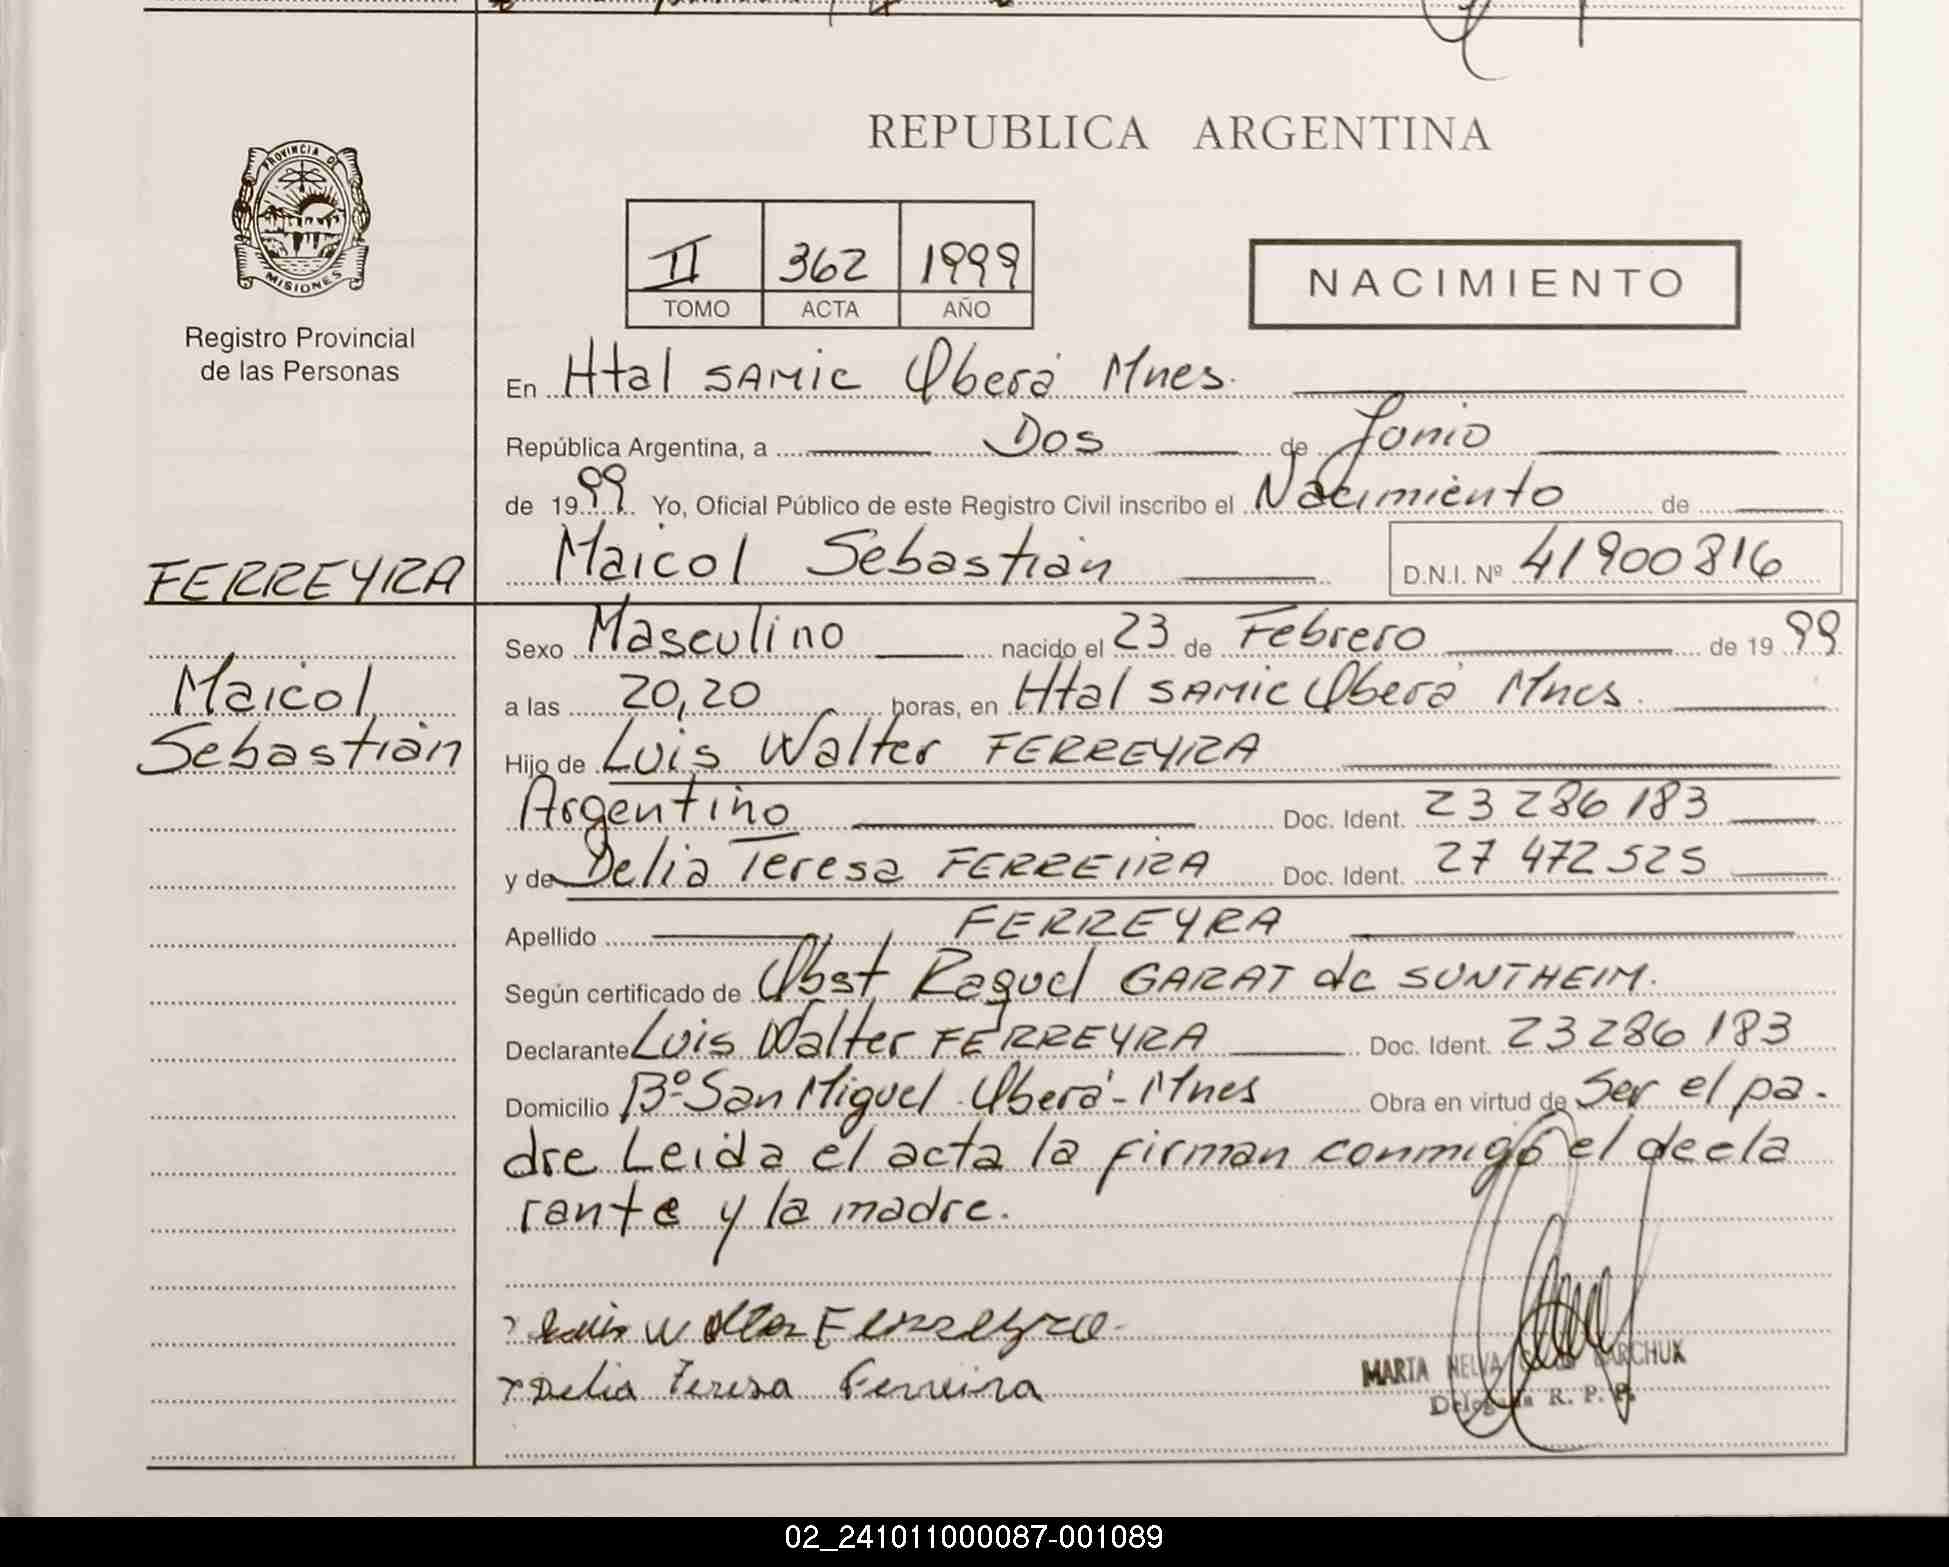 REPUBLICA ARGENTINA
PROVINCIA DE
MISIONES
Registro Provincial
de las Personas
II 362 1999
TOMO ACTA AÑO
NACIMIENTO
En Htal SAMIC Oberá Mnes.
República Argentina, a Dos de Junio
de 1999 Yo, Oficial Público de este Registro Civil inscribo el Nacimiento de
Maicol Sebastián D.N.I. Nº 41900816
FERREYRA
Maicol
Sebastián
Sexo Masculino nacido el 23 de Febrero de 1999
a las 20,20 horas, en Htal SAMIC Oberá Mnes.
Hijo de Luis Walter FERREYRA
Argentino Doc. Ident. 23 286 183
y de Delia Teresa FERREIRA Doc. Ident. 27 472 525
Apellido FERREYRA
Según certificado de Obst Raquel GARAT de SUNTHEIM.
Declarante Luis Walter FERREYRA Doc. Ident. 23286183
Domicilio Bº San Miguel Oberá - Mnes Obra en virtud de Ser el pa-
dre Leida el acta la firman conmigo el decla
rante y la madre.
Luis Walter Ferreyra
Delia Teresa Ferreira
MARTA NELVA
Delegada R. P. P.
02_241011000087-001089